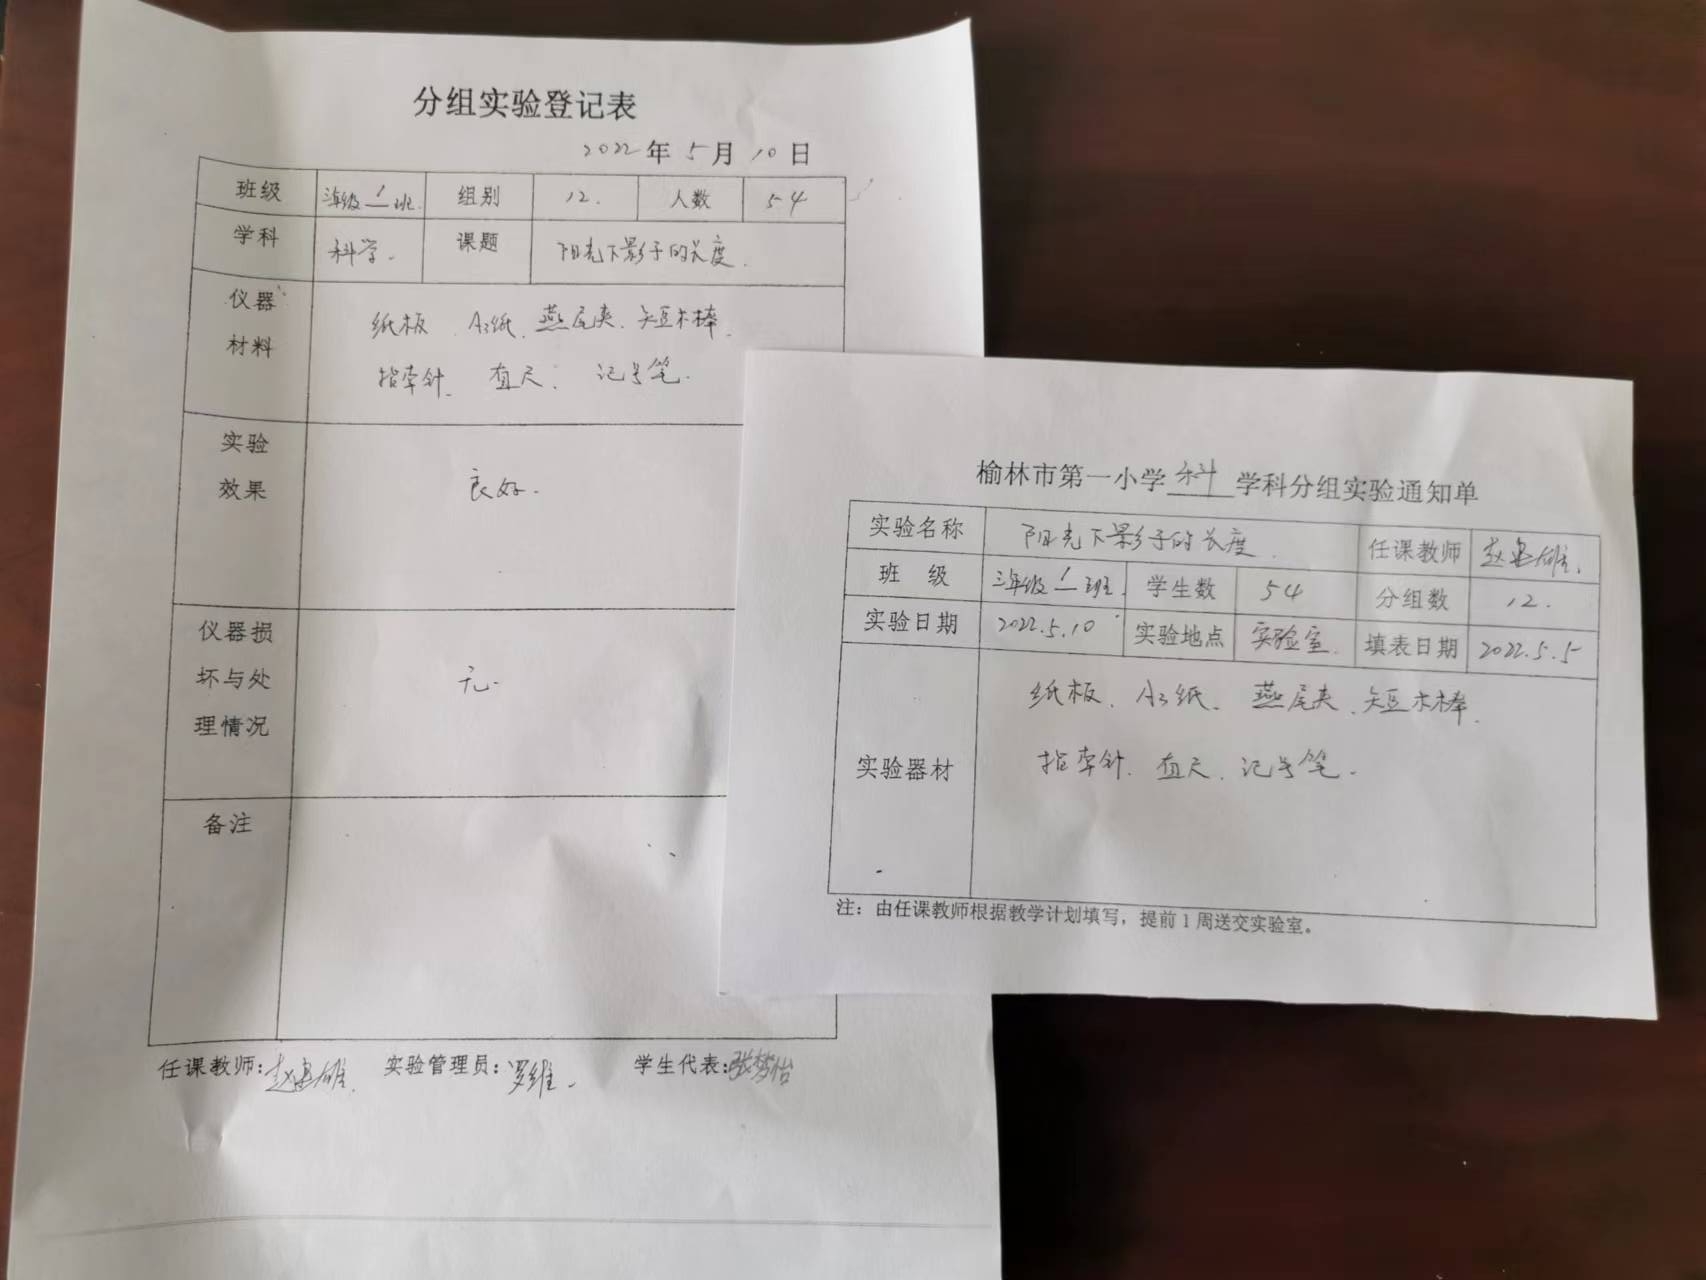 分组实验登记表
2022年5月10日
班级 三年级1班 组别 12. 人数 54
学科 科学. 课题 阳光下影子的长度.
仪器材料 纸板、A3纸、燕尾夹、短木棒、
指南针、直尺、记号笔.
实验效果 良好.
仪器损坏与处理情况 无.
备注
任课教师: 实验管理员:罗维. 学生代表:张梦怡
榆林市第一小学 科 学科分组实验通知单
实验名称 阳光下影子的长度. 任课教师
班 级 三年级1班. 学生数 54 分组数 12.
实验日期 2022.5.10 实验地点 实验室. 填表日期 2022.5.5
实验器材 纸板、A3纸、燕尾夹、短木棒、
指南针、直尺、记号笔.
注：由任课教师根据教学计划填写，提前1周送交实验室。